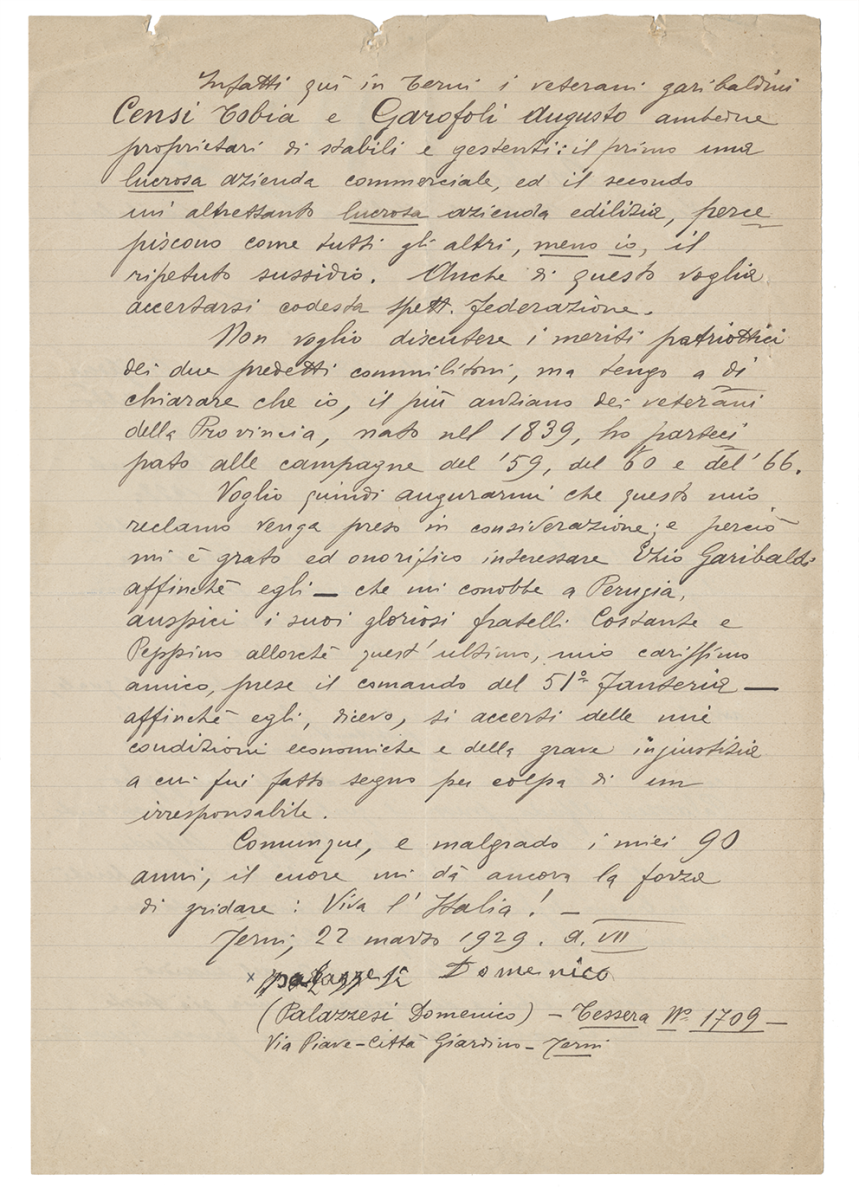 Infatti quì in Terni i veterani garibaldini
Censi Tobia e Garofoli Augusto ambedue
proprietari di stabili e gestenti: il primo una
lucrosa azienda commerciale, ed il secondo
un'altrettanto lucrosa azienda edilizia, perce
piscono come tutti gli altri, meno io, il
ripetuto sussidio. Anche di questo voglia
accertarsi codesta spett. Federazione.
Non voglio discutere i meriti patriottici
dei due predetti commilitoni, ma tengo a di
chiarare che io, il più anziano dei veterani
della Provincia, nato nel 1839, ho parteci
pato alle campagne del '59, del '60 e del '66.
Voglio quindi augurarmi che questo mio
reclamo venga preso in considerazione; e perciò
mi è grato ed onorifico interessare Ezio Garibaldi
affinchè egli — che mi conobbe a Perugia,
auspici i suoi gloriosi fratelli Costante e
Peppino allorchè quest'ultimo, mio carissimo
amico, prese il comando del 51º Fanteria —
affinchè egli, dicevo, si accerti delle mie
condizioni economiche e della grave ingiustizia
a cui fui fatto segno per colpa di un
irresponsabile.
Comunque, e malgrado i miei 90
anni, il cuore mi dà ancora la forza
di gridare: Viva l'Italia! —
Terni, 22 marzo 1929. A. VII
x palazzesi Domenico
(Palazzesi Domenico) — Tessera Nº 1709 —
Via Piave - Città Giardino - Terni